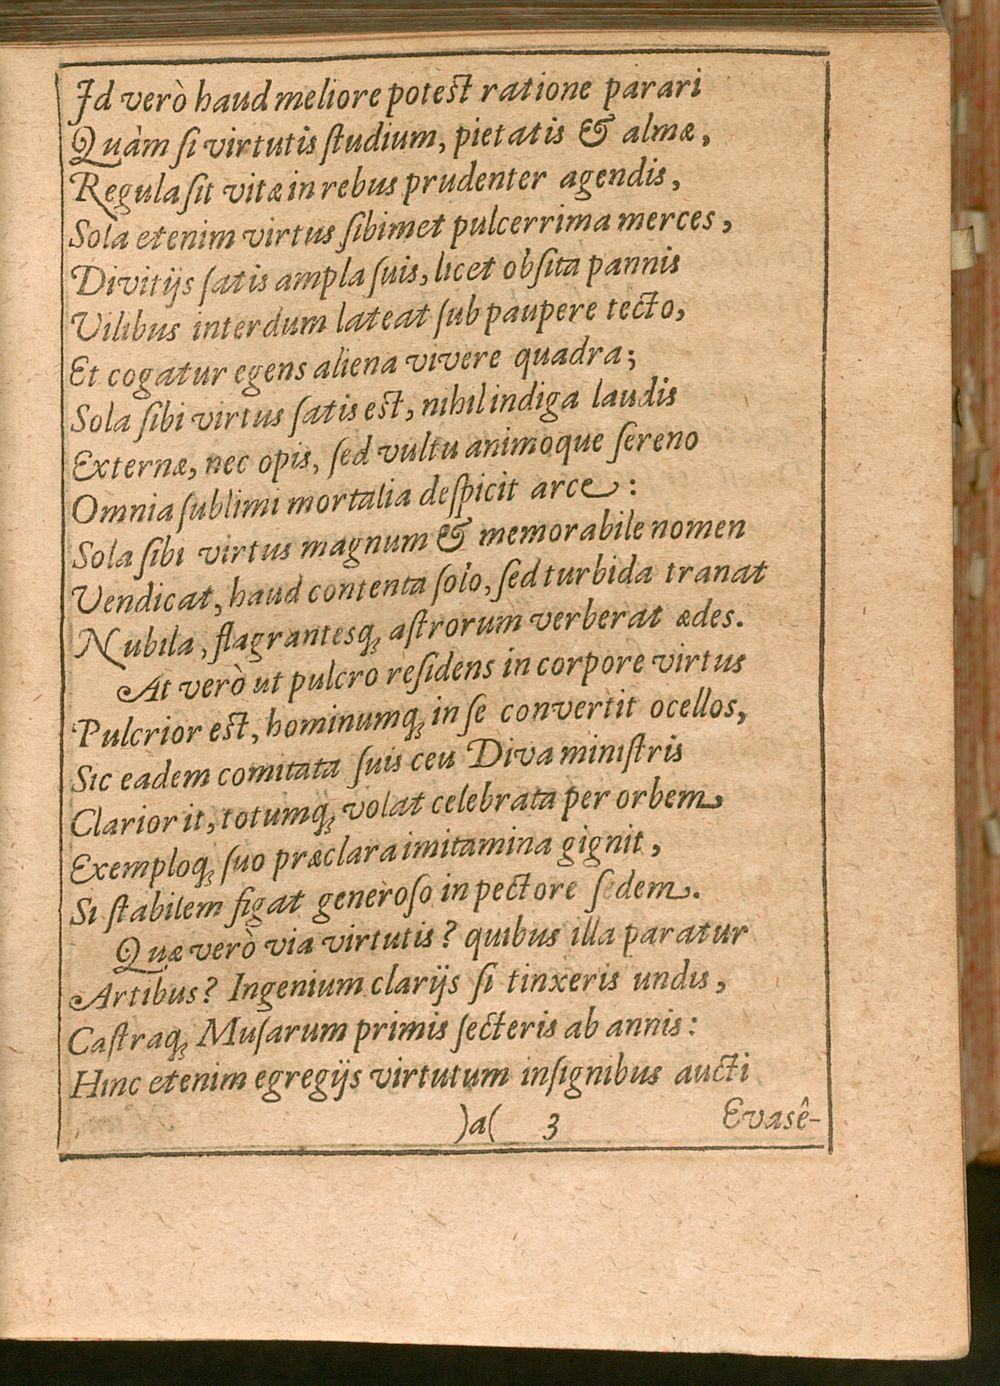 Id verò haud meliore poteſt ratione parari
Quàm ſi virtutis ſtudium, pietatis & almæ,
Regula ſit vitæ in rebus prudenter agendis,
Sola etenim virtus ſibimet pulcerrima merces,
Divitijs ſatis ampla ſuis, licet obſita pannis
Vilibus interdum lateat ſub paupere tecto,
Et cogatur egens aliena vivere quadra;
Sola ſibi virtus ſatis eſt, nihil indiga laudis
Externæ, nec opis, ſed vultu animoque ſereno
Omnia ſublimi mortalia deſpicit arce:
Sola ſibi virtus magnum & memorabile nomen
Vendicat, haud contenta ſolo, ſed turbida tranat
Nubila, flagrantesq́ꝫ aſtrorum verberat ædes.
At verò ut pulcro reſidens in corpore virtus
Pulcrior eſt, hominumq́ꝫ in ſe convertit ocellos,
Sic eadem comitata ſuis ceu Diva miniſtris
Clarior it, totumq́ꝫ volat celebrata per orbem,
Exemploq́ꝫ ſuo præclara imitamina gignit,
Si ſtabilem figat generoſo in pectore ſedem.
Quæ verò via virtutis? quibus illa paratur
Artibus? Ingenium clarijs ſi tinxeris undis,
Caſtraq́ꝫ Muſarum primis ſecteris ab annis:
Hinc etenim egregijs virtutum inſignibus aucti
)a( 3 Evasê-